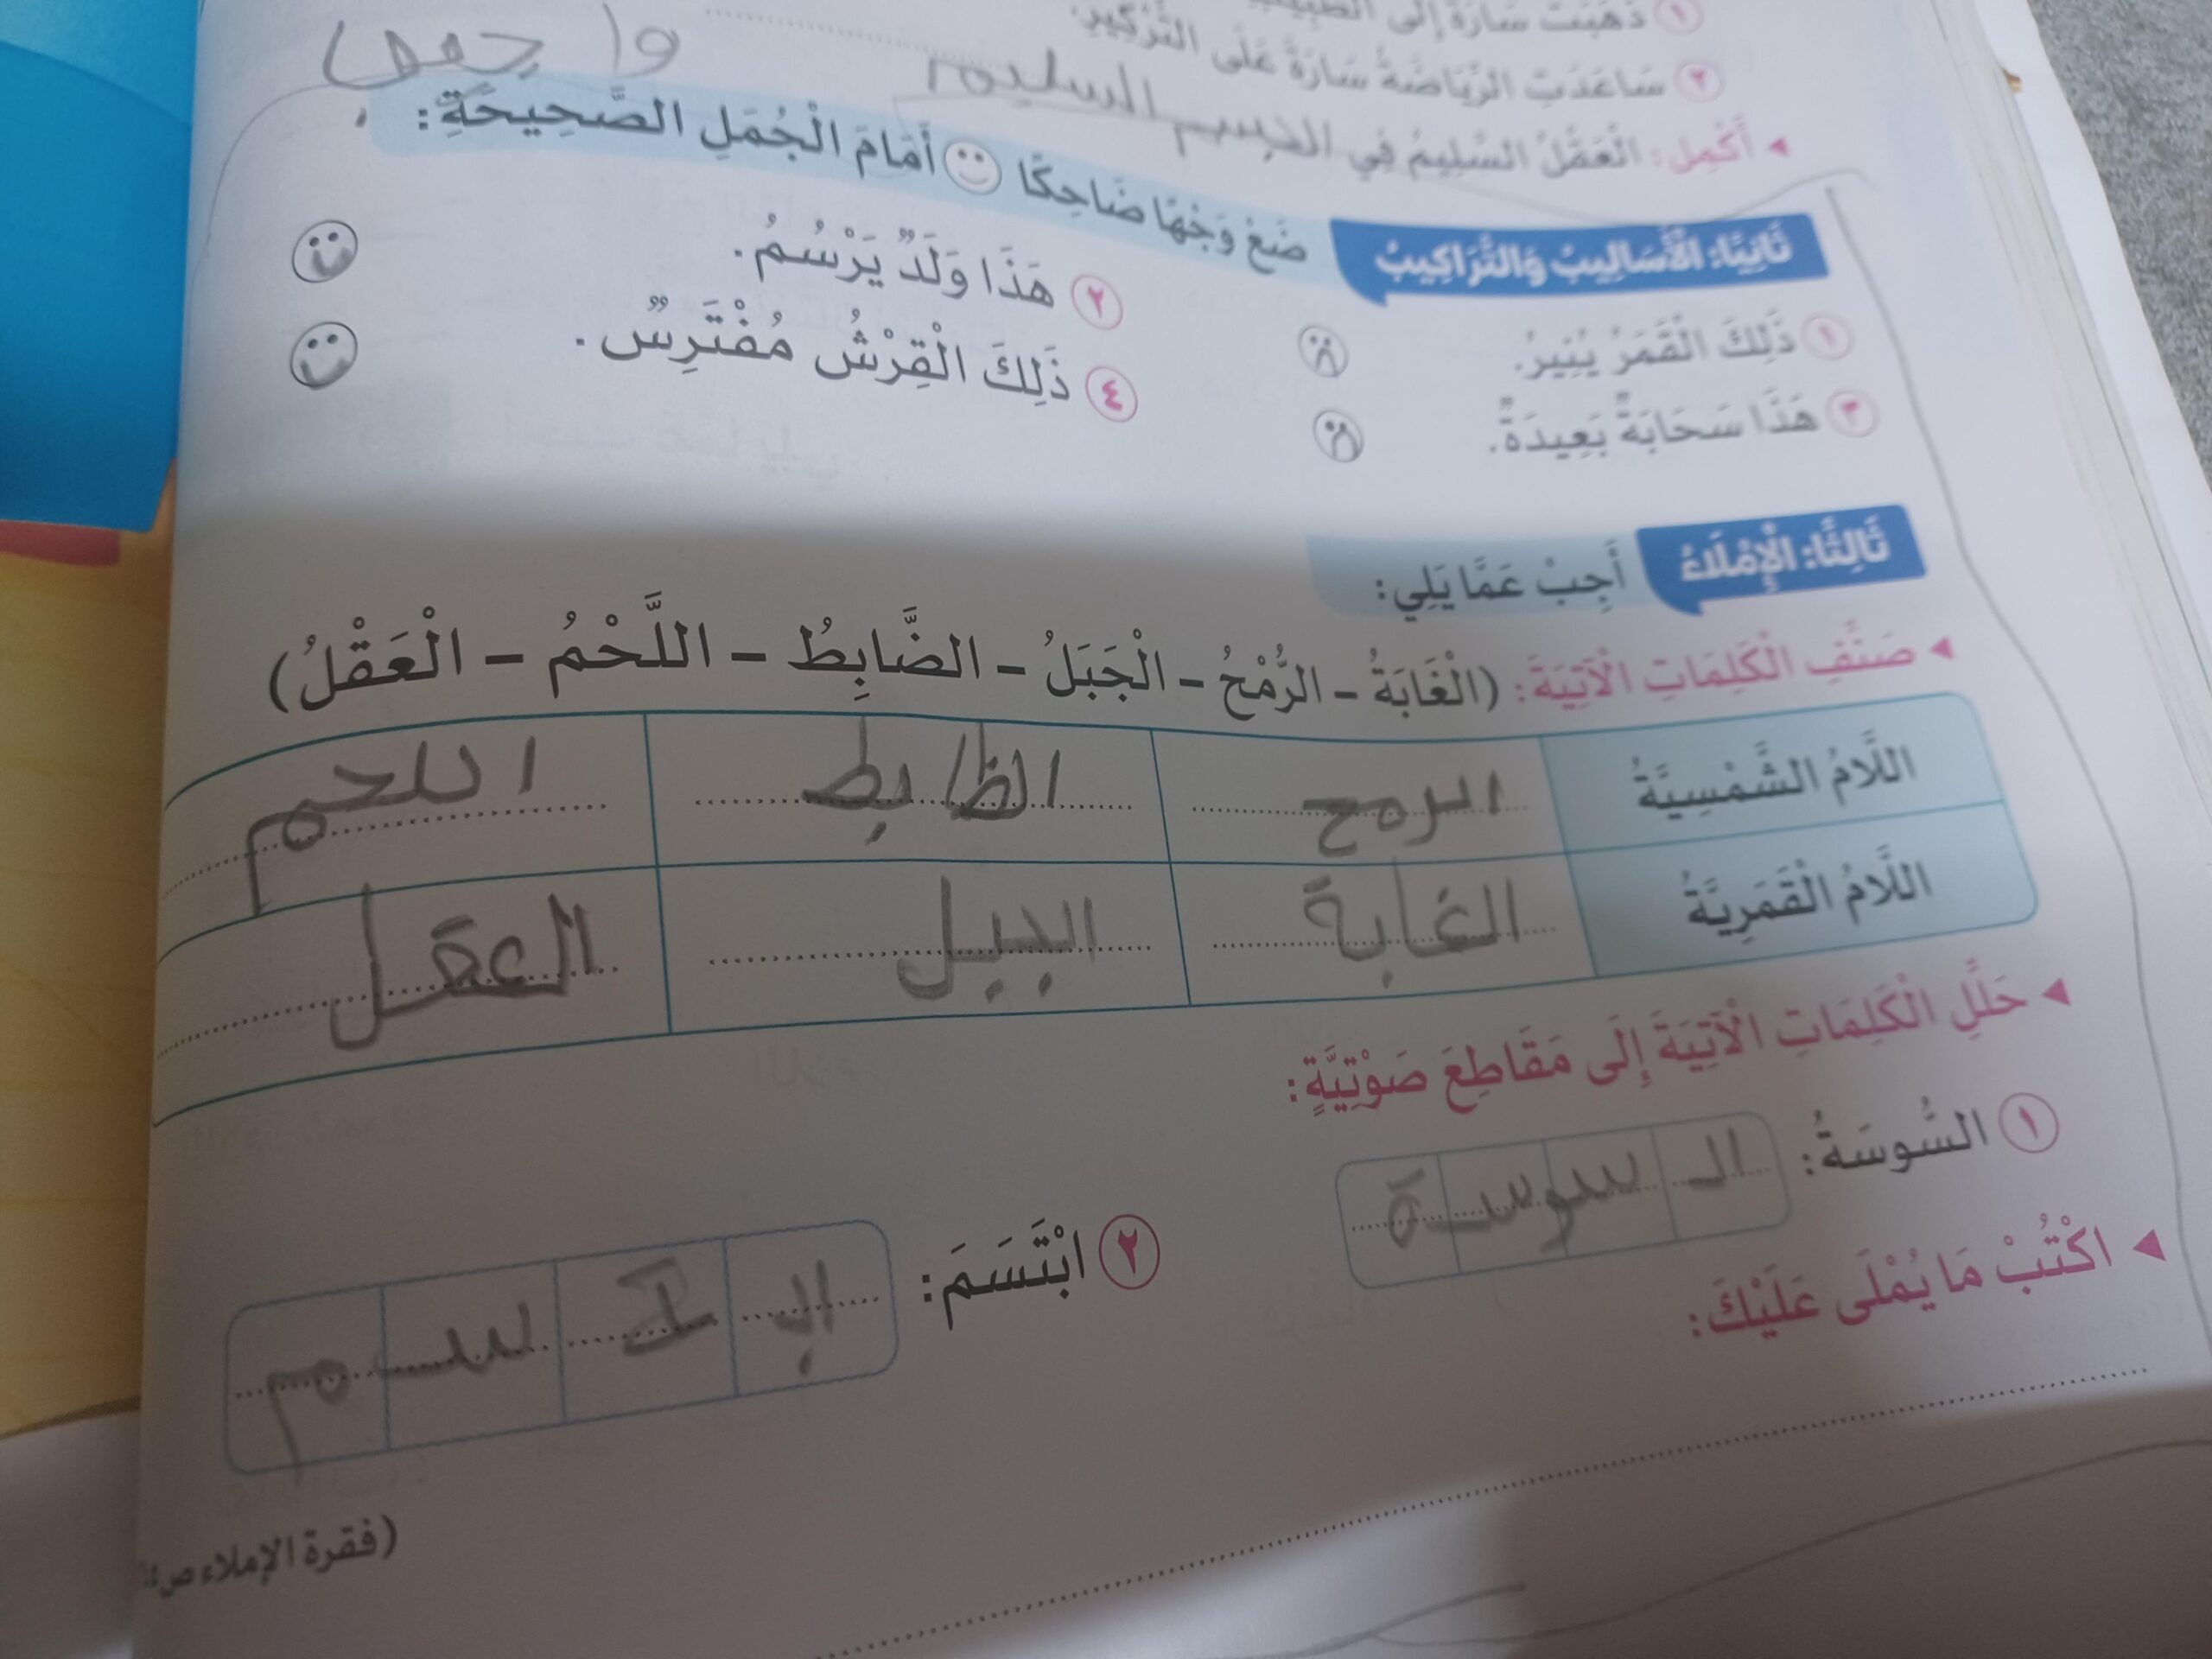 ١ ذَهَبَتْ سَارَةُ إِلَى الطَّبِيبِ
٢ سَاعَدَتِ الرِّيَاضَةُ سَارَةَ عَلَى التَّرْكِيزِ.
أَكْمِل: الْعَقْلُ السَّلِيمُ فِي الجسم السليم
ثَانِيًا: الْأَسَالِيبُ وَالتَّرَاكِيبُ ضَعْ وَجْهًا ضَاحِكًا أَمَامَ الْجُمَلِ الصَّحِيحَةِ:
١ ذَلِكَ الْقَمَرُ يُنِيرُ. ٢ هَذَا وَلَدٌ يَرْسُمُ.
٣ هَذَا سَحَابَةٌ بَعِيدَةٌ. ٤ ذَلِكَ الْقِرْشُ مُفْتَرِسٌ.
ثَالِثًا: الْإِمْلَاءُ أَجِبْ عَمَّا يَلِي:
صَنِّفِ الْكَلِمَاتِ الْآتِيَةَ: (الْغَابَةُ - الرُّمْحُ - الْجَبَلُ - الضَّابِطُ - اللَّحْمُ - الْعَقْلُ)
اللَّامُ الشَّمْسِيَّةُ الرمح الظابط اللحم
اللَّامُ الْقَمَرِيَّةُ الغابة الجبل العقل
حَلِّلِ الْكَلِمَاتِ الْآتِيَةَ إِلَى مَقَاطِعَ صَوْتِيَّةٍ:
١ السُّوسَةُ: الـ سو سـ ة
٢ ابْتَسَمَ: ابـ تـ سـ م
اكْتُبْ مَا يُمْلَى عَلَيْكَ:
(فقرة الإملاء ص